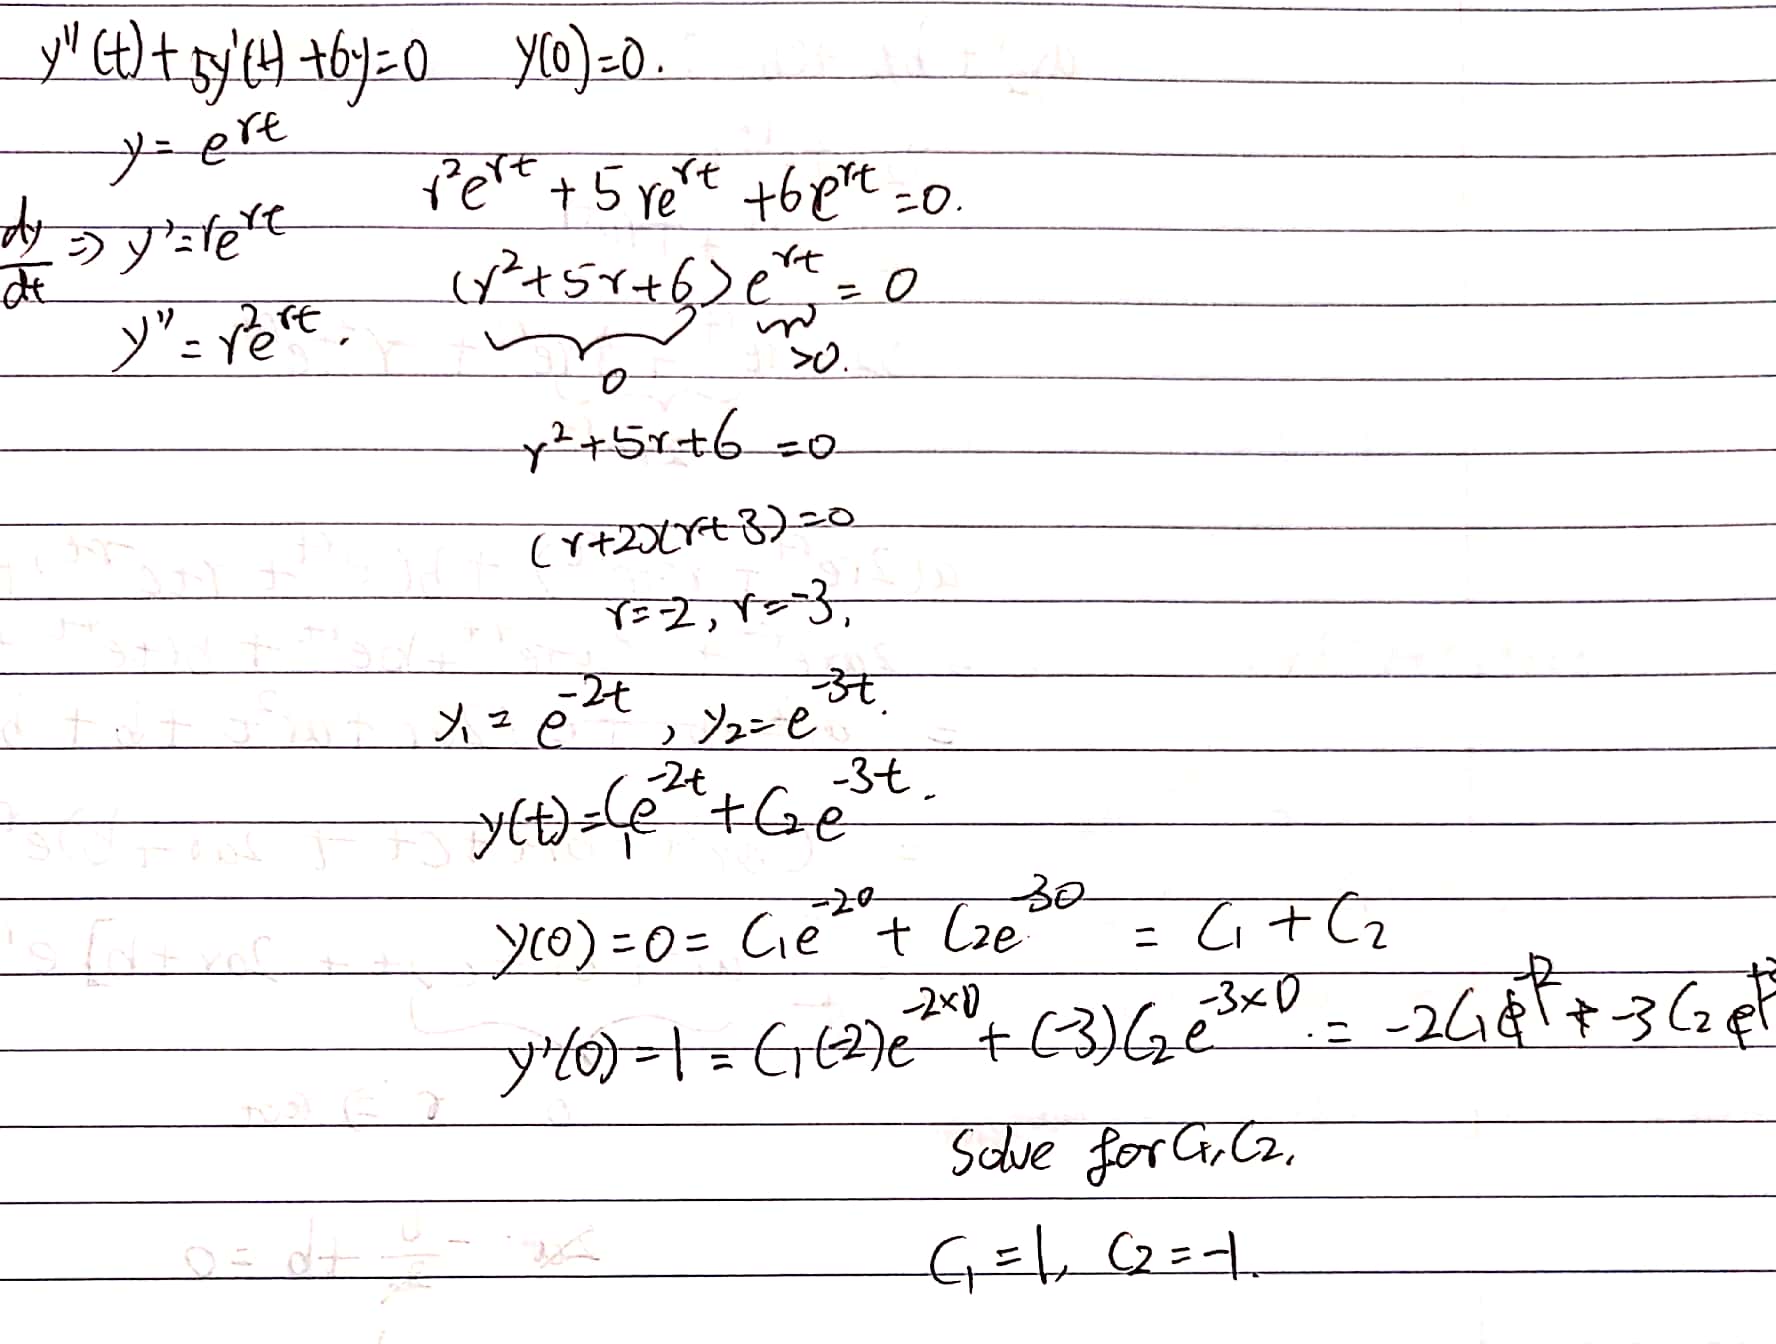 y''(t) + 5y'(t) + 6y = 0 y(0) = 0.
y = e^{rt}
r²e^{rt} + 5re^{rt} + 6e^{rt} = 0.
dy/dt ⇒ y' = re^{rt}
(r² + 5r + 6) e^{rt} = 0
y'' = r²e^{rt}.
0 >0.
r² + 5r + 6 = 0
(r+2)(r+3) = 0
r = -2, r = -3,
y₁ = e^{-2t}, y₂ = e^{-3t}.
y(t) = C₁e^{-2t} + C₂e^{-3t}.
y(0) = 0 = C₁e^{-20} + C₂e^{-30} = C₁ + C₂
y'(0) = 1 = C₁(-2)e^{-2×0} + (-3)C₂e^{-3×0}. = -2C₁ + -3C₂
Solve for C₁, C₂.
C₁ = 1, C₂ = -1.